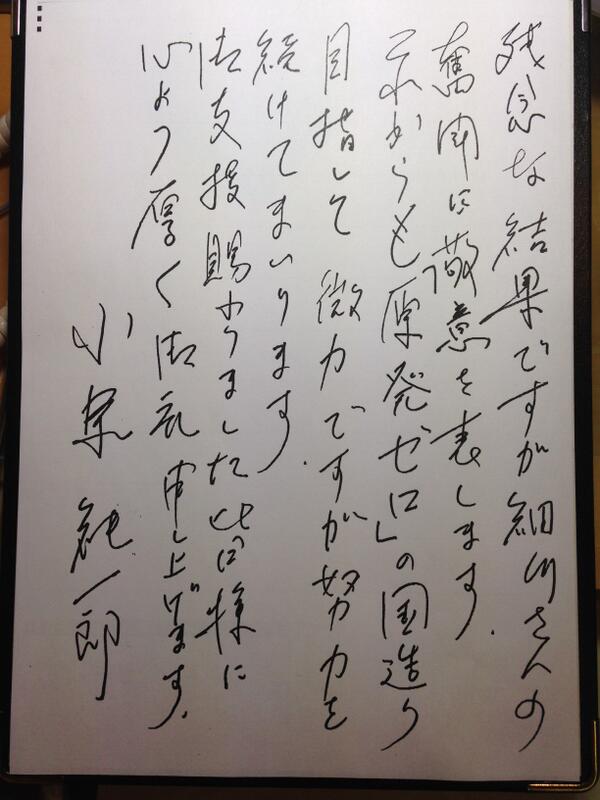 残念な結果ですが細川さんの
奮闘に敬意を表します.
これからも「原発ゼロ」の国造り
目指して微力ですが努力を
続けてまいります.
御支援賜わりました皆様に
心より厚く御礼申し上げます.
小泉純一郎